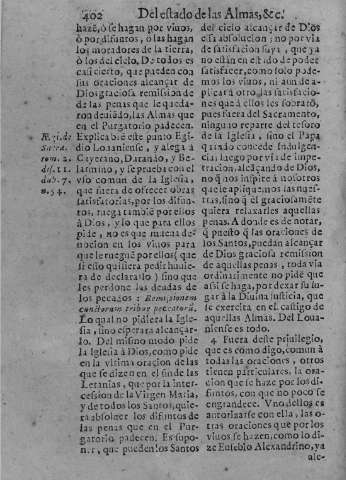 402 Del estado de las Almas, &c.
hazẽ, ò se hagan por viuos,
ò por difuntos, ò las hagan
los moradores de la tierra,
ò los del cielo. De todos es
casi cierto, que pueden con
sus oraciones alcançar de
Dios graciosa remission de
de las penas que le queda-
ron deuiẽdo, las Almas que
en el Purgatorio padecen.
Explica bre este punto Egi-
dio Louaniense, y alega à
Cayetano, Durando, y Be-
larmino, y se prueba con el
vso comun de la Iglesia,
que fuera de ofrecer obras
satisfatorias, por los difun-
tos, ruega tambiẽ por ellos
à Dios, y lo que para ellos
pide, no es que mueua de-
nocion en los viuos para
que le rueguẽ por ellos (que
si esso quisiera pedir huuie-
ra de declararlo) sino que
les perdone las deudas de
los pecados: Remissionem
cunctorum tribue peccatorũ.
Lo qual no pidiera la Igle-
sia, sino esperara alcançar-
lo. Del mismo modo pide
la Iglesia à Dios, como pide
en la vltima oracion de las
que se dizen en el fin de las
Letanias, que por la inter-
cession de la Virgen Maria,
y de todos los Santos, quie-
ra absoluer los difuntos de
las penas que en el Pur-
gatorio padecen. Es supo-
ner, que pueden los Santos
Sacra.
tom. 2.
dis. 11.
dub. 7.
n. 54.
del cielo alcançar de Dios
esta absolucion; no por via
de satisfacion suya, que ya
no estàn en estado de poder
satisfacer, como solo pode-
mos los viuos, ni aun de a-
plicar à otro las satisfacio-
nes que à ellos les sobrarõ,
pues fuera del Sacramento,
ninguno reparte del tesoro
de la Iglesia, sino el Papa
quando concede Indulgen-
cia; luego por via de impe-
tracion, alcãçando de Dios,
no q̃ nos inspire à nosotros
que le apliquemos las nues-
tras, sino q̃ el graciosamẽte
quiera relaxarles aquellas
penas. A donde es de notar,
q̃ puesto q̃ las oraciones de
los Santos, puedan alcançar
de Dios graciosa remission
de aquellas penas, toda via
ordinariamente no pide que
assi se haga, por dexar su lu-
gar à la Diuina justicia, que
se exercita en el castigo de
aquellas Almas. Del Loua-
niense es todo.
4 Fuera deste priuilegio,
que es como digo, comun à
todas las oraciones, otros
tienen particulares, la ora-
cion que se haze por los di-
funtos, con que no poco se
engrandece. Vno dellos es
autorizarse con ella, las o-
tras oraciones que por los
viuos se hazen, como lo di-
ze Eusebio Alexandrino, ya
ale-